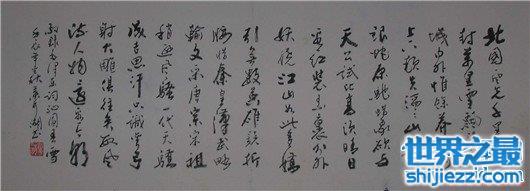 北国风光千里
封万里雪飘
城内外惟余莽
上下顿失滔滔山
银蛇原驰蜡象欲与
天公试比高须晴日
看红装素裹分外
妖娆江山如此多娇
引无数英雄竞折
腰惜秦皇汉武略
输文采唐宗宋祖
稍逊风骚一代天骄
成吉思汗只识弯弓
射大雕俱往矣数风
流人物还看今朝
毛泽东词沁园春雪
世界之最
www.sjzzz.com